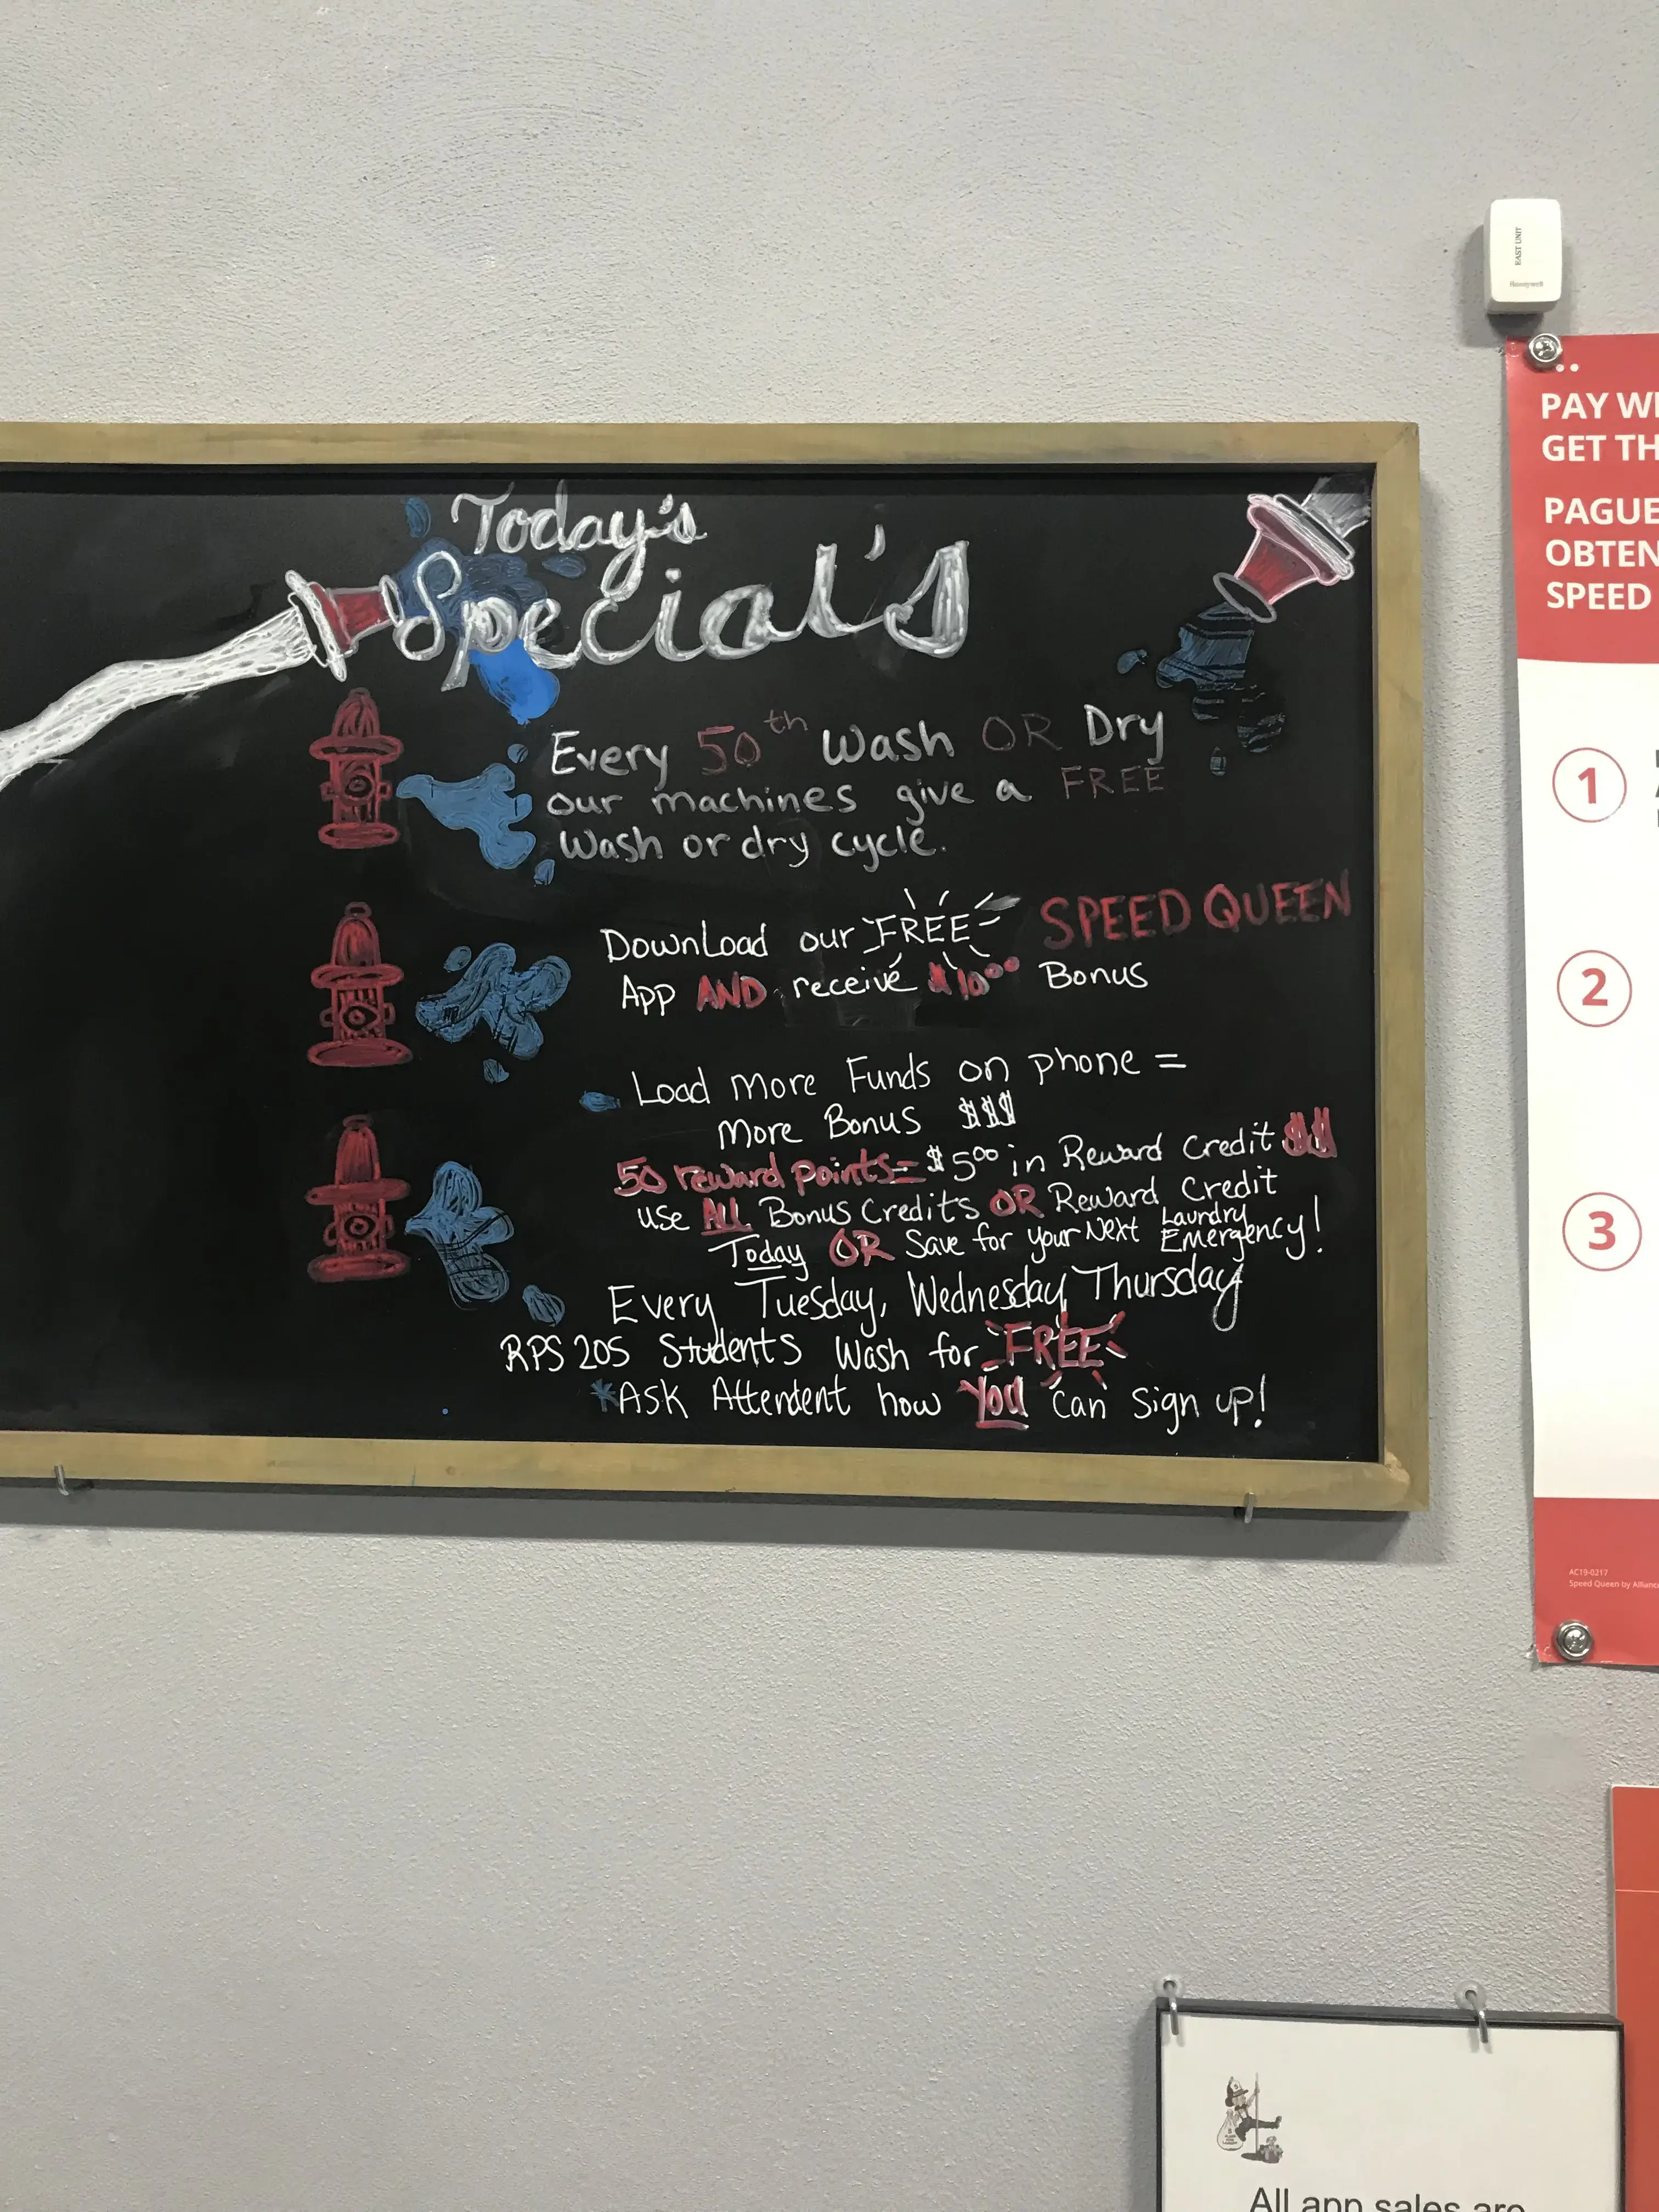 Today's
Special's
Every 50th Wash OR Dry
our machines give a FREE
Wash or dry cycle.
Download our FREE SPEED QUEEN
App AND receive $10.00 Bonus
Load more Funds on phone =
more Bonus $$$
50 reward points = $5.00 in Reward Credit $$
use ALL Bonus Credits OR Reward Credit
Today OR Save for your Next Laundry Emergency!
Every Tuesday, Wednesday, Thursday
RPS 205 Students Wash for FREE
*Ask Attendent how You can sign up!
EAST UNIT
Honeywell
PAY WI
GET TH
PAGUE
OBTEN
SPEED
1
2
3
AC19-0217
Speed Queen by Alliance
All app sales are